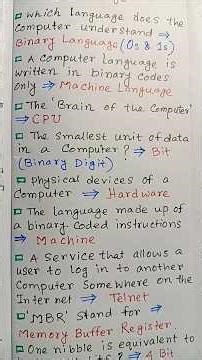 which language does the
computer understand ⇒
Binary Language (0s & 1s)
A computer language is
written in binary codes
only ⇒ Machine Language
The 'Brain of the Computer'
⇒ CPU
The smallest unit of data
in a computer? ⇒ Bit
(Binary Digit)
physical devices of a
Computer ⇒ Hardware
The language made up of
a binary coded instructions
⇒ Machine
A service that allows a
user to log in to another
Computer somewhere on the
Internet ⇒ Telnet
'MBR' stand for ⇒
Memory Buffer Register
One nibble is equivalent to
⇒ 4 Bit